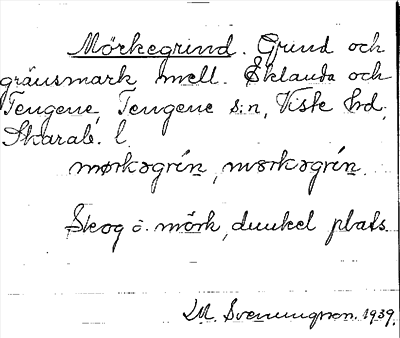 Mörkegrind. Grind och
gränsmark mell. Eklanda och
Tengene, Tengene s:n, Viste hd,
Skarab. l.
mørkəgrín, mørkəgrín.
Skog o. mörk, dunkel plats.
M. Svenungsson. 1939.